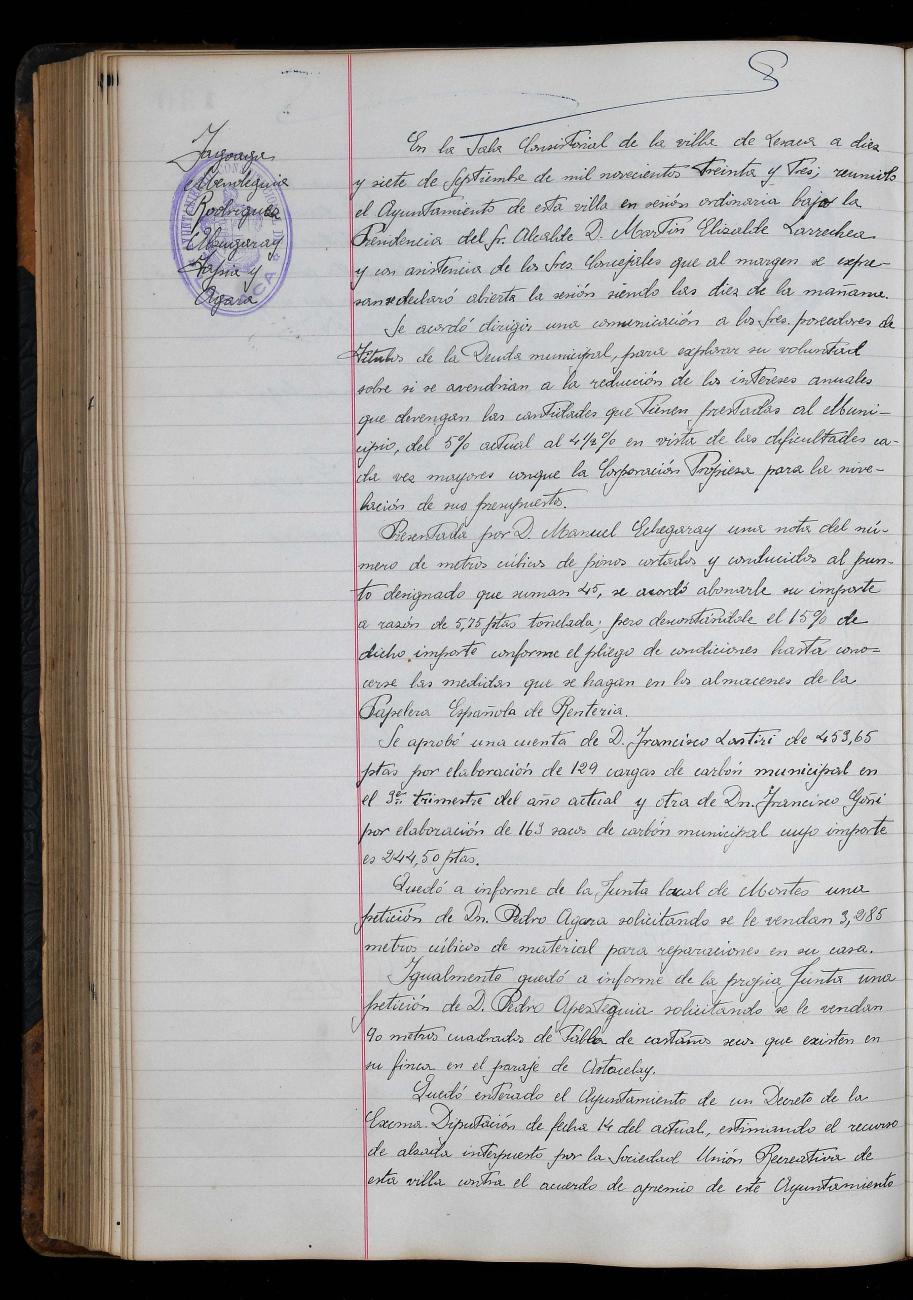 Jagoaga
Mendeguia
Rodriguez
Elzugaray
Tapia y
Agara
En la Sala Consistorial de la villa de Lesaca a diez
y siete de Septiembre de mil novecientos treinta y tres; reunido
el Ayuntamiento de esta villa en sesión ordinaria bajo la
Presidencia del Sr. Alcalde D. Martin Elizalde Larrechea
y con asistencia de los Sres. Concejales que al margen se expre-
san se declaró abierta la sesión siendo las diez de la mañana.
Se acordó dirigir una comunicación a los Sres. poseedores de
Titulos de la Deuda municipal, para explorar su voluntad
sobre si se avendrian a la reducción de los intereses anuales
que devengan las cantidades que tienen prestadas al Muni-
cipio, del 5% actual al 4½% en vista de las dificultades ca-
da vez mayores conque la Corporación tropieza para la nive-
lación de sus presupuestos.
Presentada por D. Manuel Echegaray una nota del nú-
mero de metros cúbicos de pinos cortados y conducidos al pun-
to designado que suman 45, se acordó abonarle su importe
a razón de 5,75 ptas tonelada; pero descontándole el 15% de
dicho importe conforme el pliego de condiciones hasta cono-
cerse las medidas que se hagan en los almacenes de la
Papelera Española de Renteria.
Se aprobó una cuenta de D. Francisco Lastiri de 453,65
ptas por elaboración de 129 cargas de carbón municipal en
el 3er. trimestre del año actual y otra de Dn. Francisco Goñi
por elaboración de 163 sacos de carbón municipal cuyo importe
es 244,50 ptas.
Quedó a informe de la Junta local de Montes una
petición de Dn. Pedro Agara solicitando se le vendan 3,285
metros cúbicos de material para reparaciones en su casa.
Igualmente quedó a informe de la propia Junta una
petición de D. Pedro Apesteguia solicitando se le vendan
90 metros cuadrados de tabla de castaños secos que existen en
su finca en el paraje de
Quedó enterado el Ayuntamiento de un Decreto de la
Excma. Diputación de fecha 14 del actual, estimando el recurso
de alzada interpuesto por la Sociedad Unión Recreativa de
esta villa contra el acuerdo de apremio de este Ayuntamiento